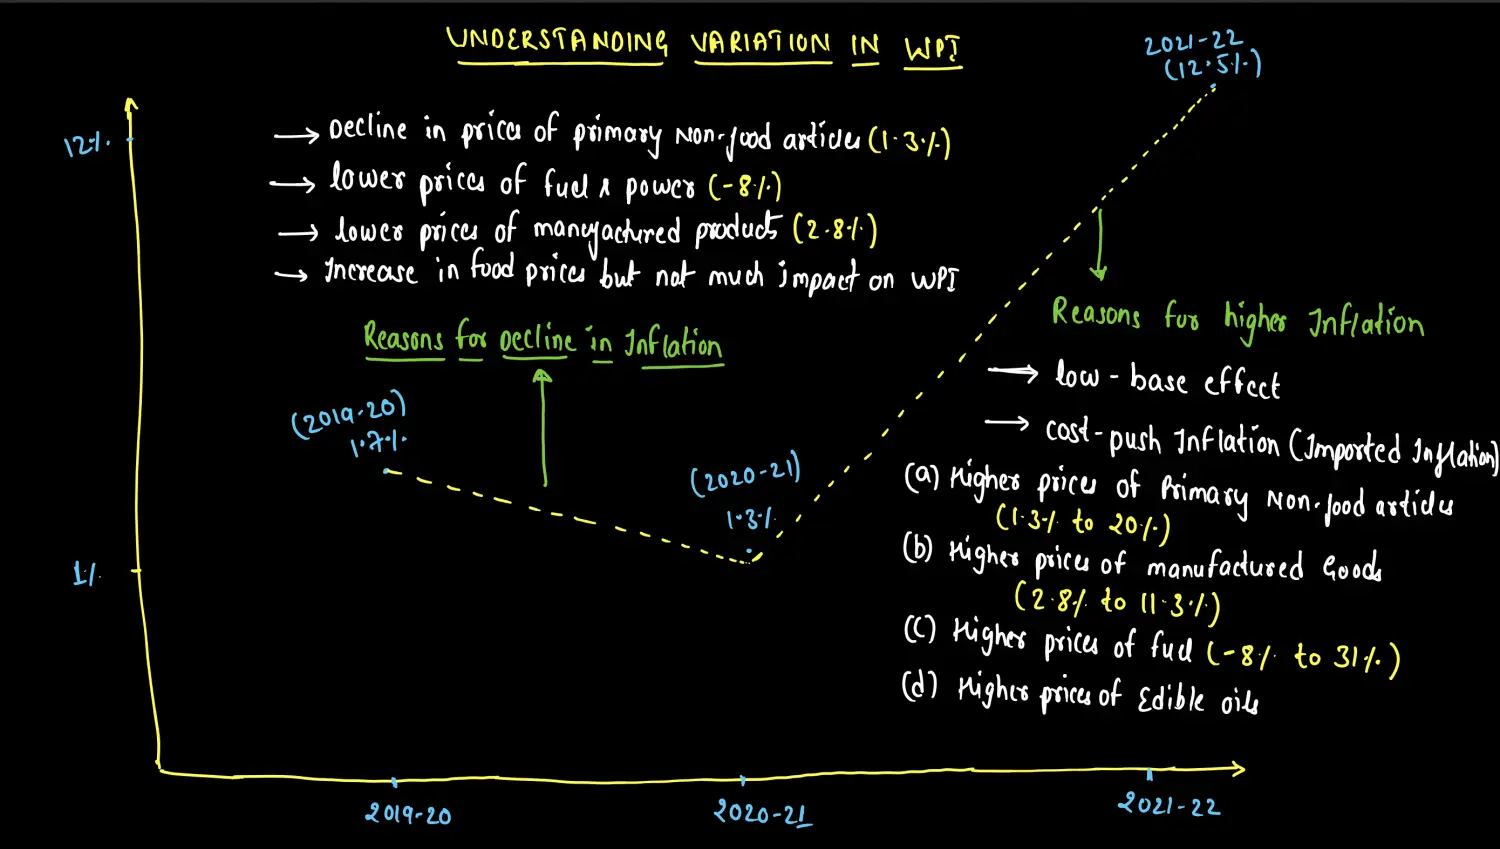 UNDERSTANDING VARIATION IN WPI
2021-22
(12.5%)
12%
→ Decline in prices of primary Non-food articles (1.3%)
→ lower prices of fuel & power (-8%)
→ lower prices of manufactured products (2.8%)
→ Increase in food prices but not much impact on WPI
Reasons for Decline in Inflation
(2019-20)
1.7%
(2020-21)
1.3%
1%
Reasons for higher Inflation
→ low-base effect
→ cost-push Inflation (Imported Inflation)
(a) Higher prices of Primary Non-food articles
(1.3% to 20%)
(b) Higher prices of manufactured Goods
(2.8% to 11.3%)
(c) Higher prices of fuel (-8% to 31%)
(d) Higher prices of Edible oils
2019-20
2020-21
2021-22